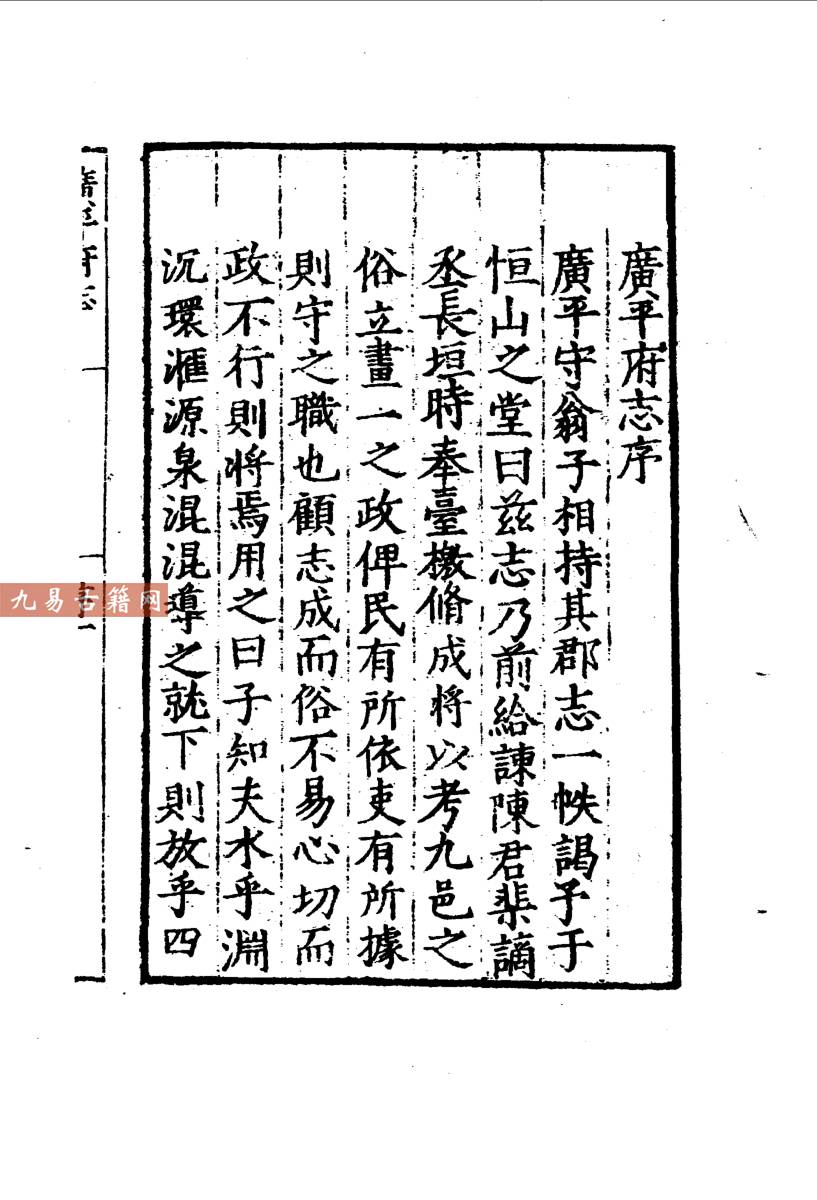 廣平府志序
廣平守翁子相持其郡志一帙謁予于
恒山之堂曰兹志乃前給諫陳君棐謫
丞長垣時奉臺檄脩成將以考九邑之
俗立畫一之政俾民有所依吏有所據
則守之職也顧志成而俗不易心切而
政不行則將焉用之曰子知夫水乎淵
沉環滙源泉混混導之就下則放乎四
廣平府志
九易古籍网